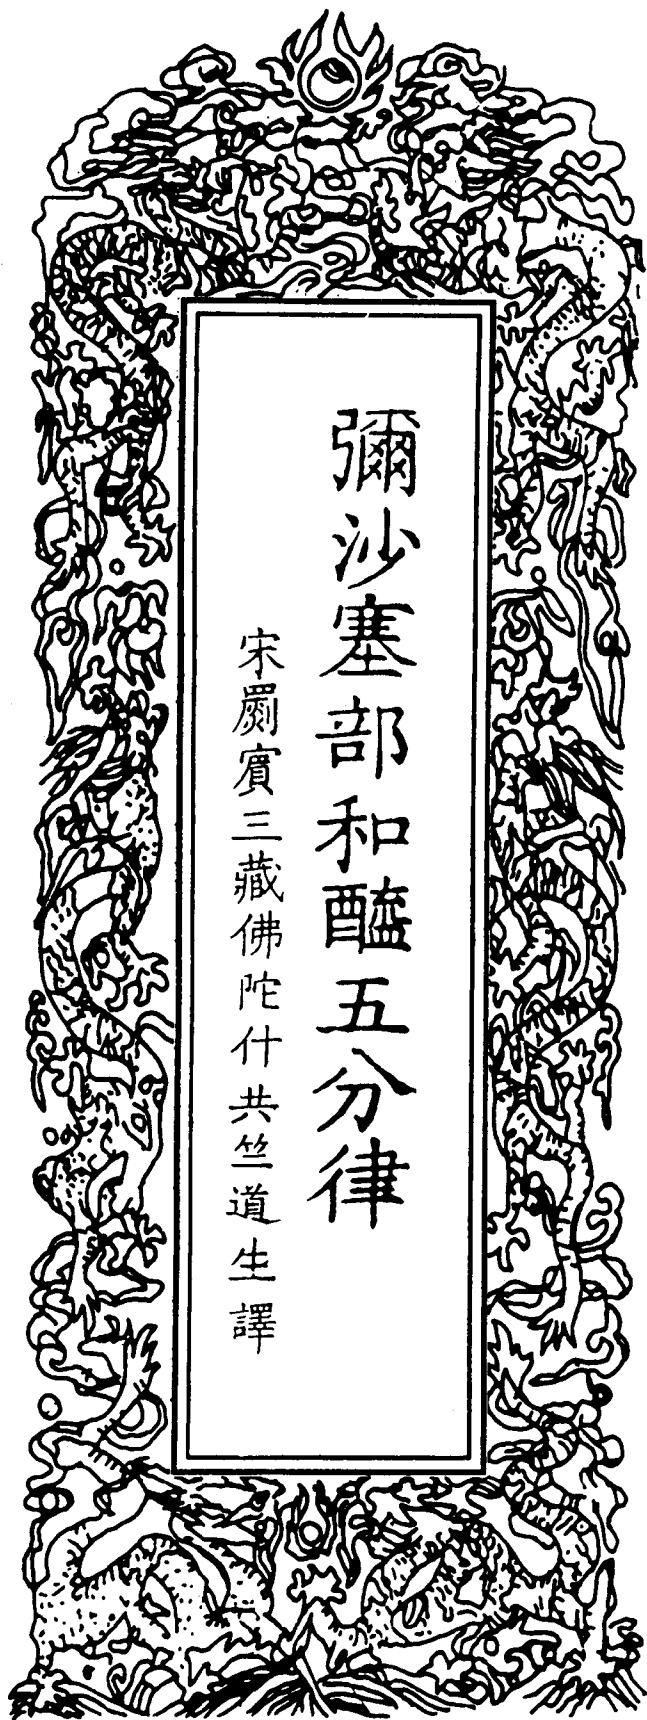 彌沙塞部和醯五分律
宋罽賓三藏佛陀什共竺道生譯